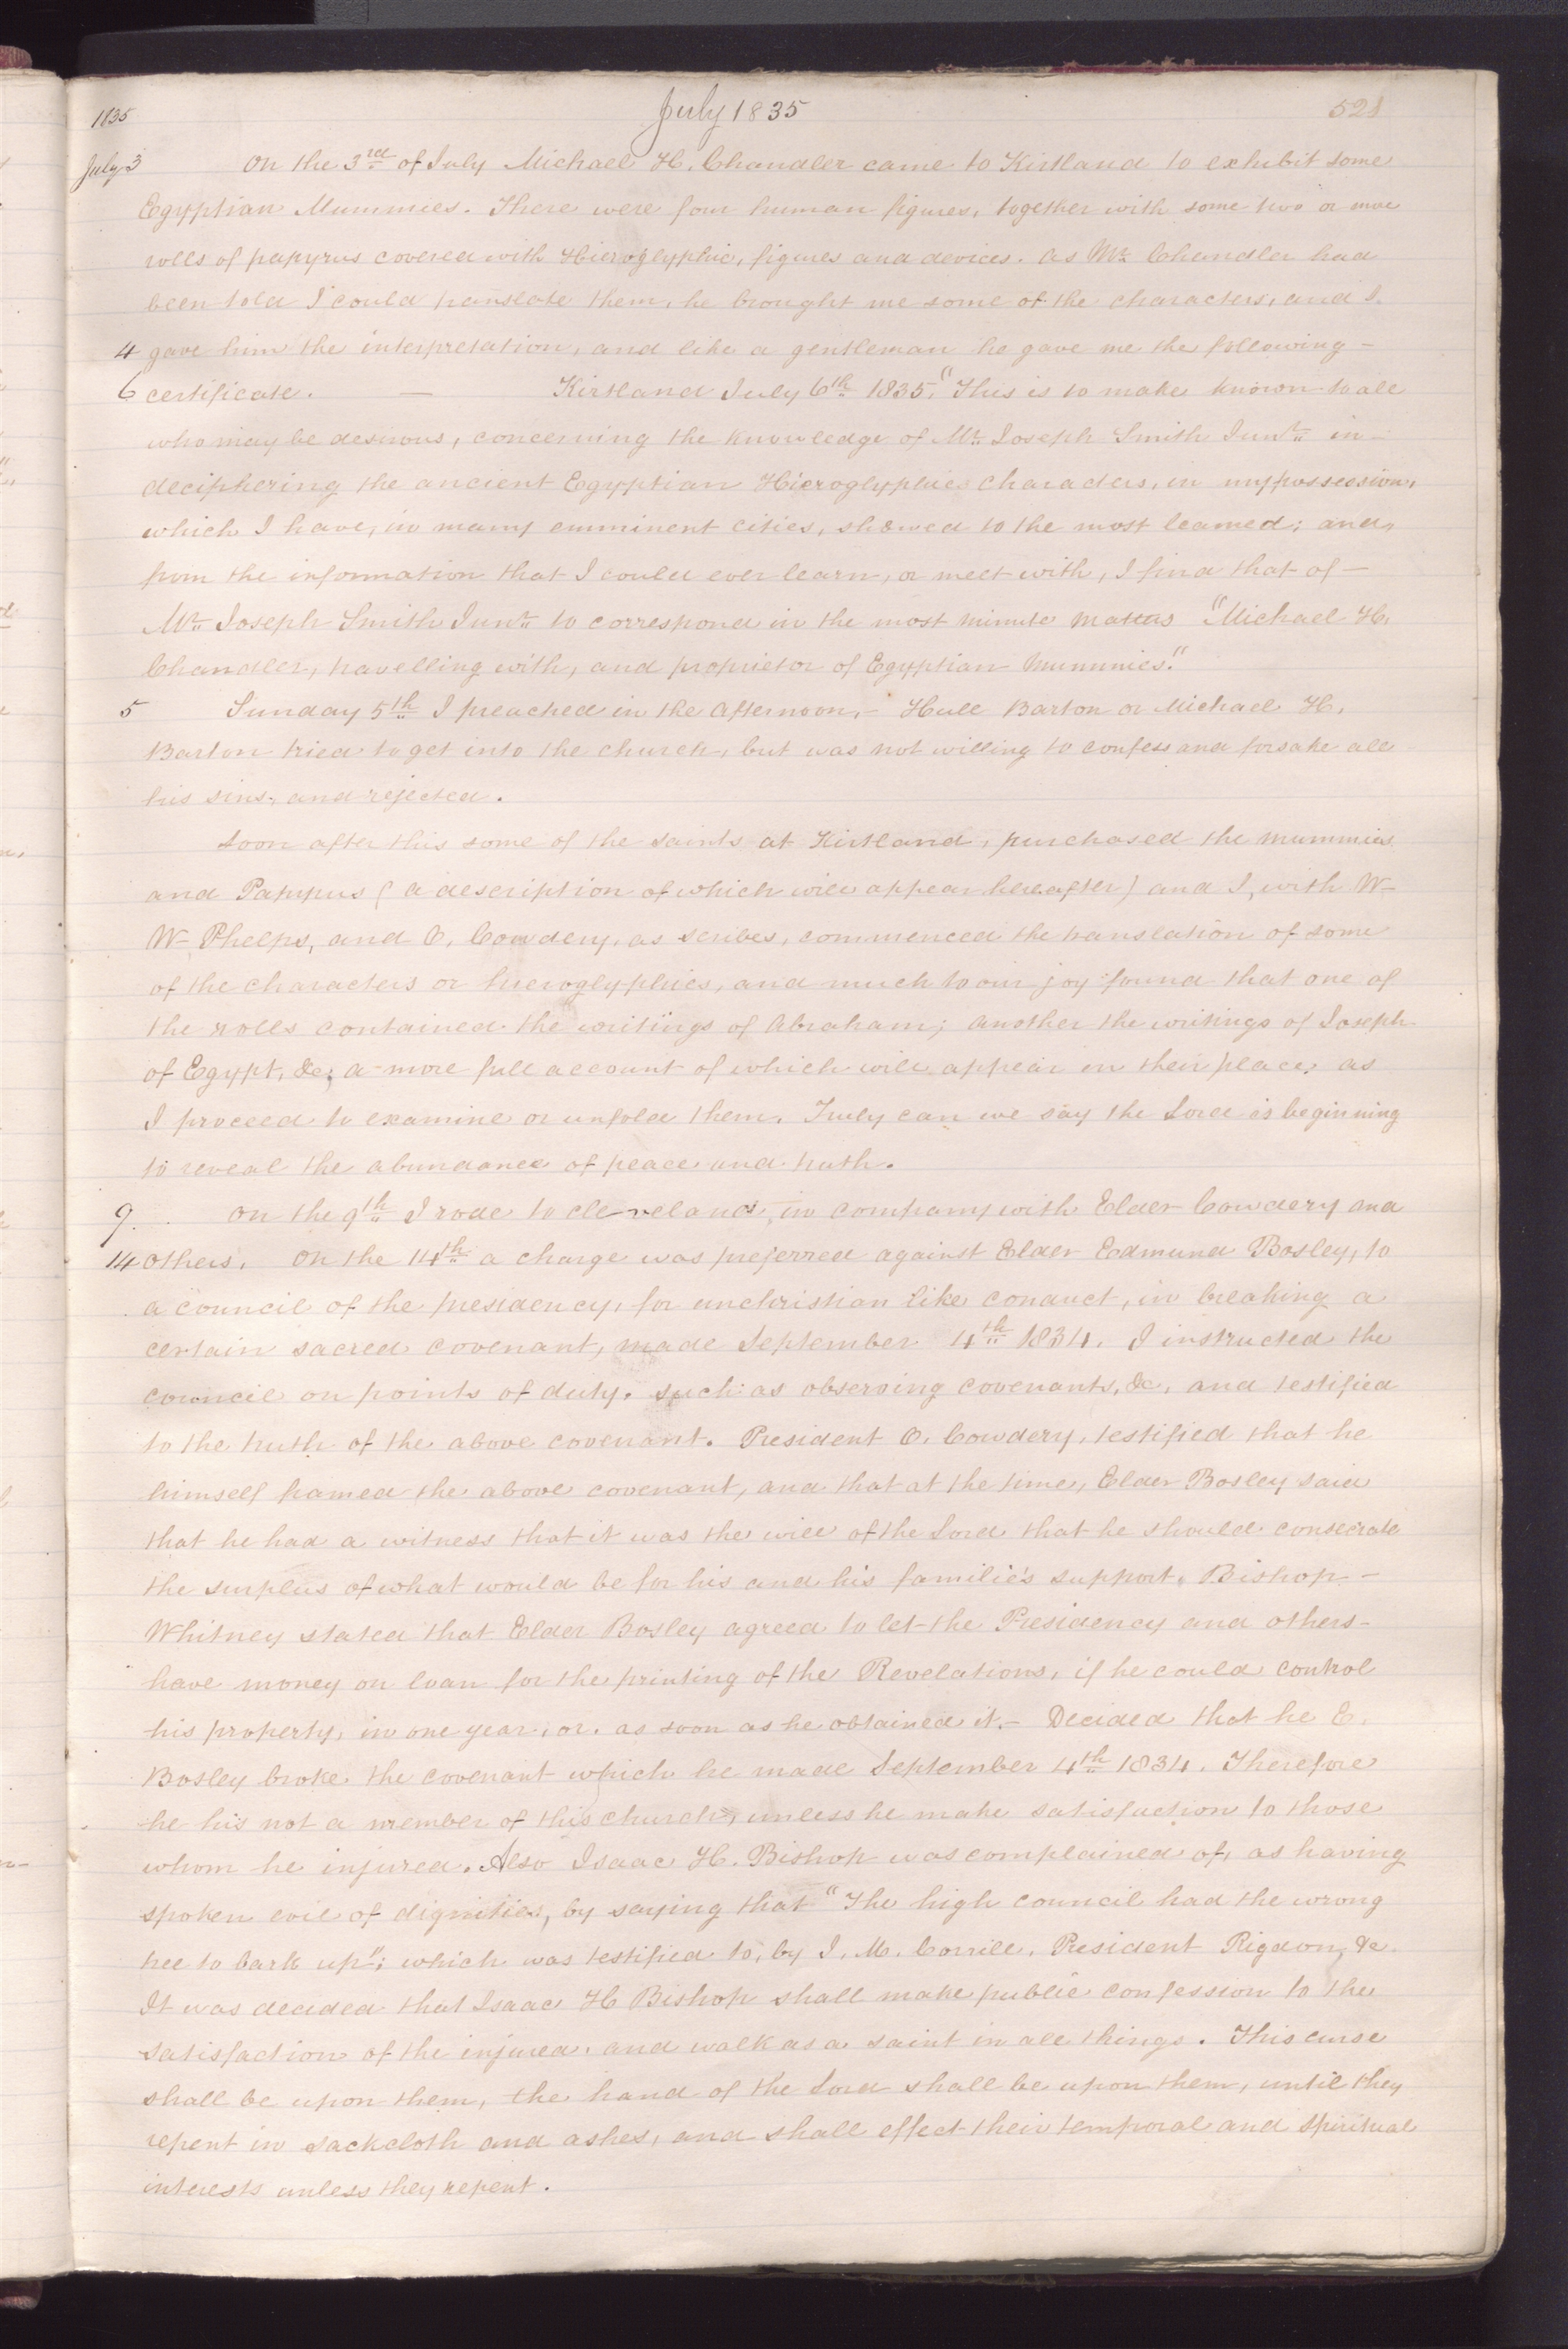 July 1835
521
1835
July 3 On the 3rd of July Michael H. Chandler came to Kirtland to exhibit some
Egyptian Mummies. There were four human figures, together with some two or more
rolls of papyrus covered with Hieroglyphic, figures and devices. As Mr. Chandler had
been told I could translate them, he brought me some of the characters, and I
4 gave him the interpretation, and like a gentleman he gave me the following –
6 certificate. — Kirtland July 6th 1835. "This is to make known to all
who may be desirous, concerning the knowledge of Mr. Joseph Smith Junr. in –
deciphering the ancient Egyptian Hieroglyphic characters, in my possession,
which I have, in many emminent cities, shewed to the most learned; and,
from the information that I could ever learn, or meet with, I find that of –
Mr. Joseph Smith Junr. to correspond in the most minute matters "Michael H.
Chandler, travelling with, and proprietor of Egyptian Mummies."
5 Sunday 5th I preached in the afternoon. – Hull Barton or Michael H.
Barton tried to get into the church, but was not willing to confess and forsake all
his sins, and rejected.
Soon after this some of the saints at Kirtland, purchased the mummies
and Papyrus (a description of which will appear hereafter) and I, with W–
W– Phelps, and O. Cowdery, as scribes, commenced the translation of some
of the characters or hieroglyphics, and much to our joy found that one of
the rolls contained the writings of Abraham; another the writings of Joseph
of Egypt, &c; a more full account of which will appear in their place, as
I proceed to examine or unfold them. Truly can we say the Lord is beginning
to reveal the abundance of peace and truth.
9. On the 9th I rode to Cleveland, in company with Elder Cowdery and
14 others. On the 14th a charge was preferred against Elder Edmund Bosley, to
a council of the presidency, for unchristian like conduct, in breaking a
certain sacred covenant, made September 4th 1834. I instructed the
council on points of duty, such as observing covenants, &c, and testified
to the truth of the above covenant. President O. Cowdery, testified that he
himself framed the above covenant, and that at the time, Elder Bosley said
that he had a witness that it was the will of the Lord that he should consecrate
the surplus of what would be for his and his familie's support. Bishop –
Whitney stated that Elder Bosley agreed to let the Presidency and others –
have money on loan for the printing of the Revelations, if he could control
his property, in one year, or as soon as he obtained it. – Decided that he E.
Bosley broke the covenant which he made September 4th 1834. Therefore
he his not a member of this church, unless he make satisfaction to those
whom he injured. Also Isaac H. Bishop was complained of, as having
spoken evil of dignities, by saying that "The high council had the wrong
tree to bark up"; which was testified to, by I. M. Corrill, President Rigdon, &c.
It was decided that Isaac H Bishop shall make public confession to the
satisfaction of the injured, and walk as a saint in all things. This curse
shall be upon them, the hand of the Lord shall be upon them, until they
repent in sackcloth and ashes, and shall effect their temporal and spiritual
interests unless they repent.